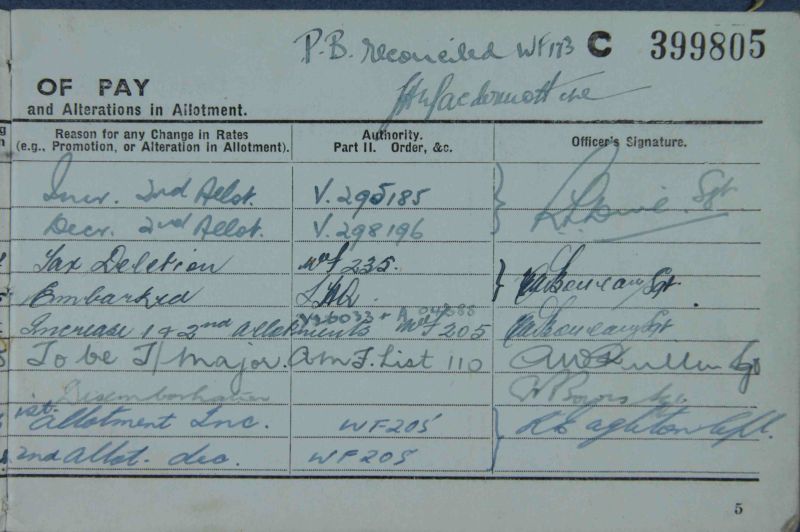 P.B. reconciled WF173 C 399805
OF PAY
and Alterations in Allotment.
Reason for any Change in Rates
(e.g., Promotion, or Alteration in Allotment).
Authority.
Part II. Order, &c.
Officer's Signature.
Incr. 2nd Allot. V. 295185 Sgt.
Decr. 2nd Allot. V. 298196
Tax Deletion WF 235.
Embarked Sgt
V26033 + A
Increase 1 & 2nd allotments WF 205 Sgt
To be T/Major. A.M.F. List 110 Sgt
Disembarkation
1st. Allotment Inc. WF205
2nd Allot. dec. WF 205
5